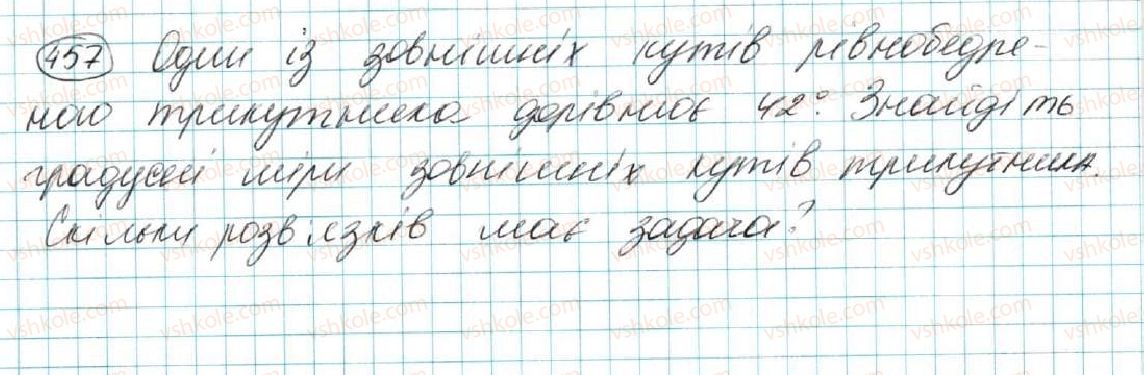 457 Один із зовнішніх кутів рівнобедре-
ного трикутника дорівнює 42°. Знайдіть
градусні міри зовнішніх кутів трикутника.
Скільки розв'язків має задача?